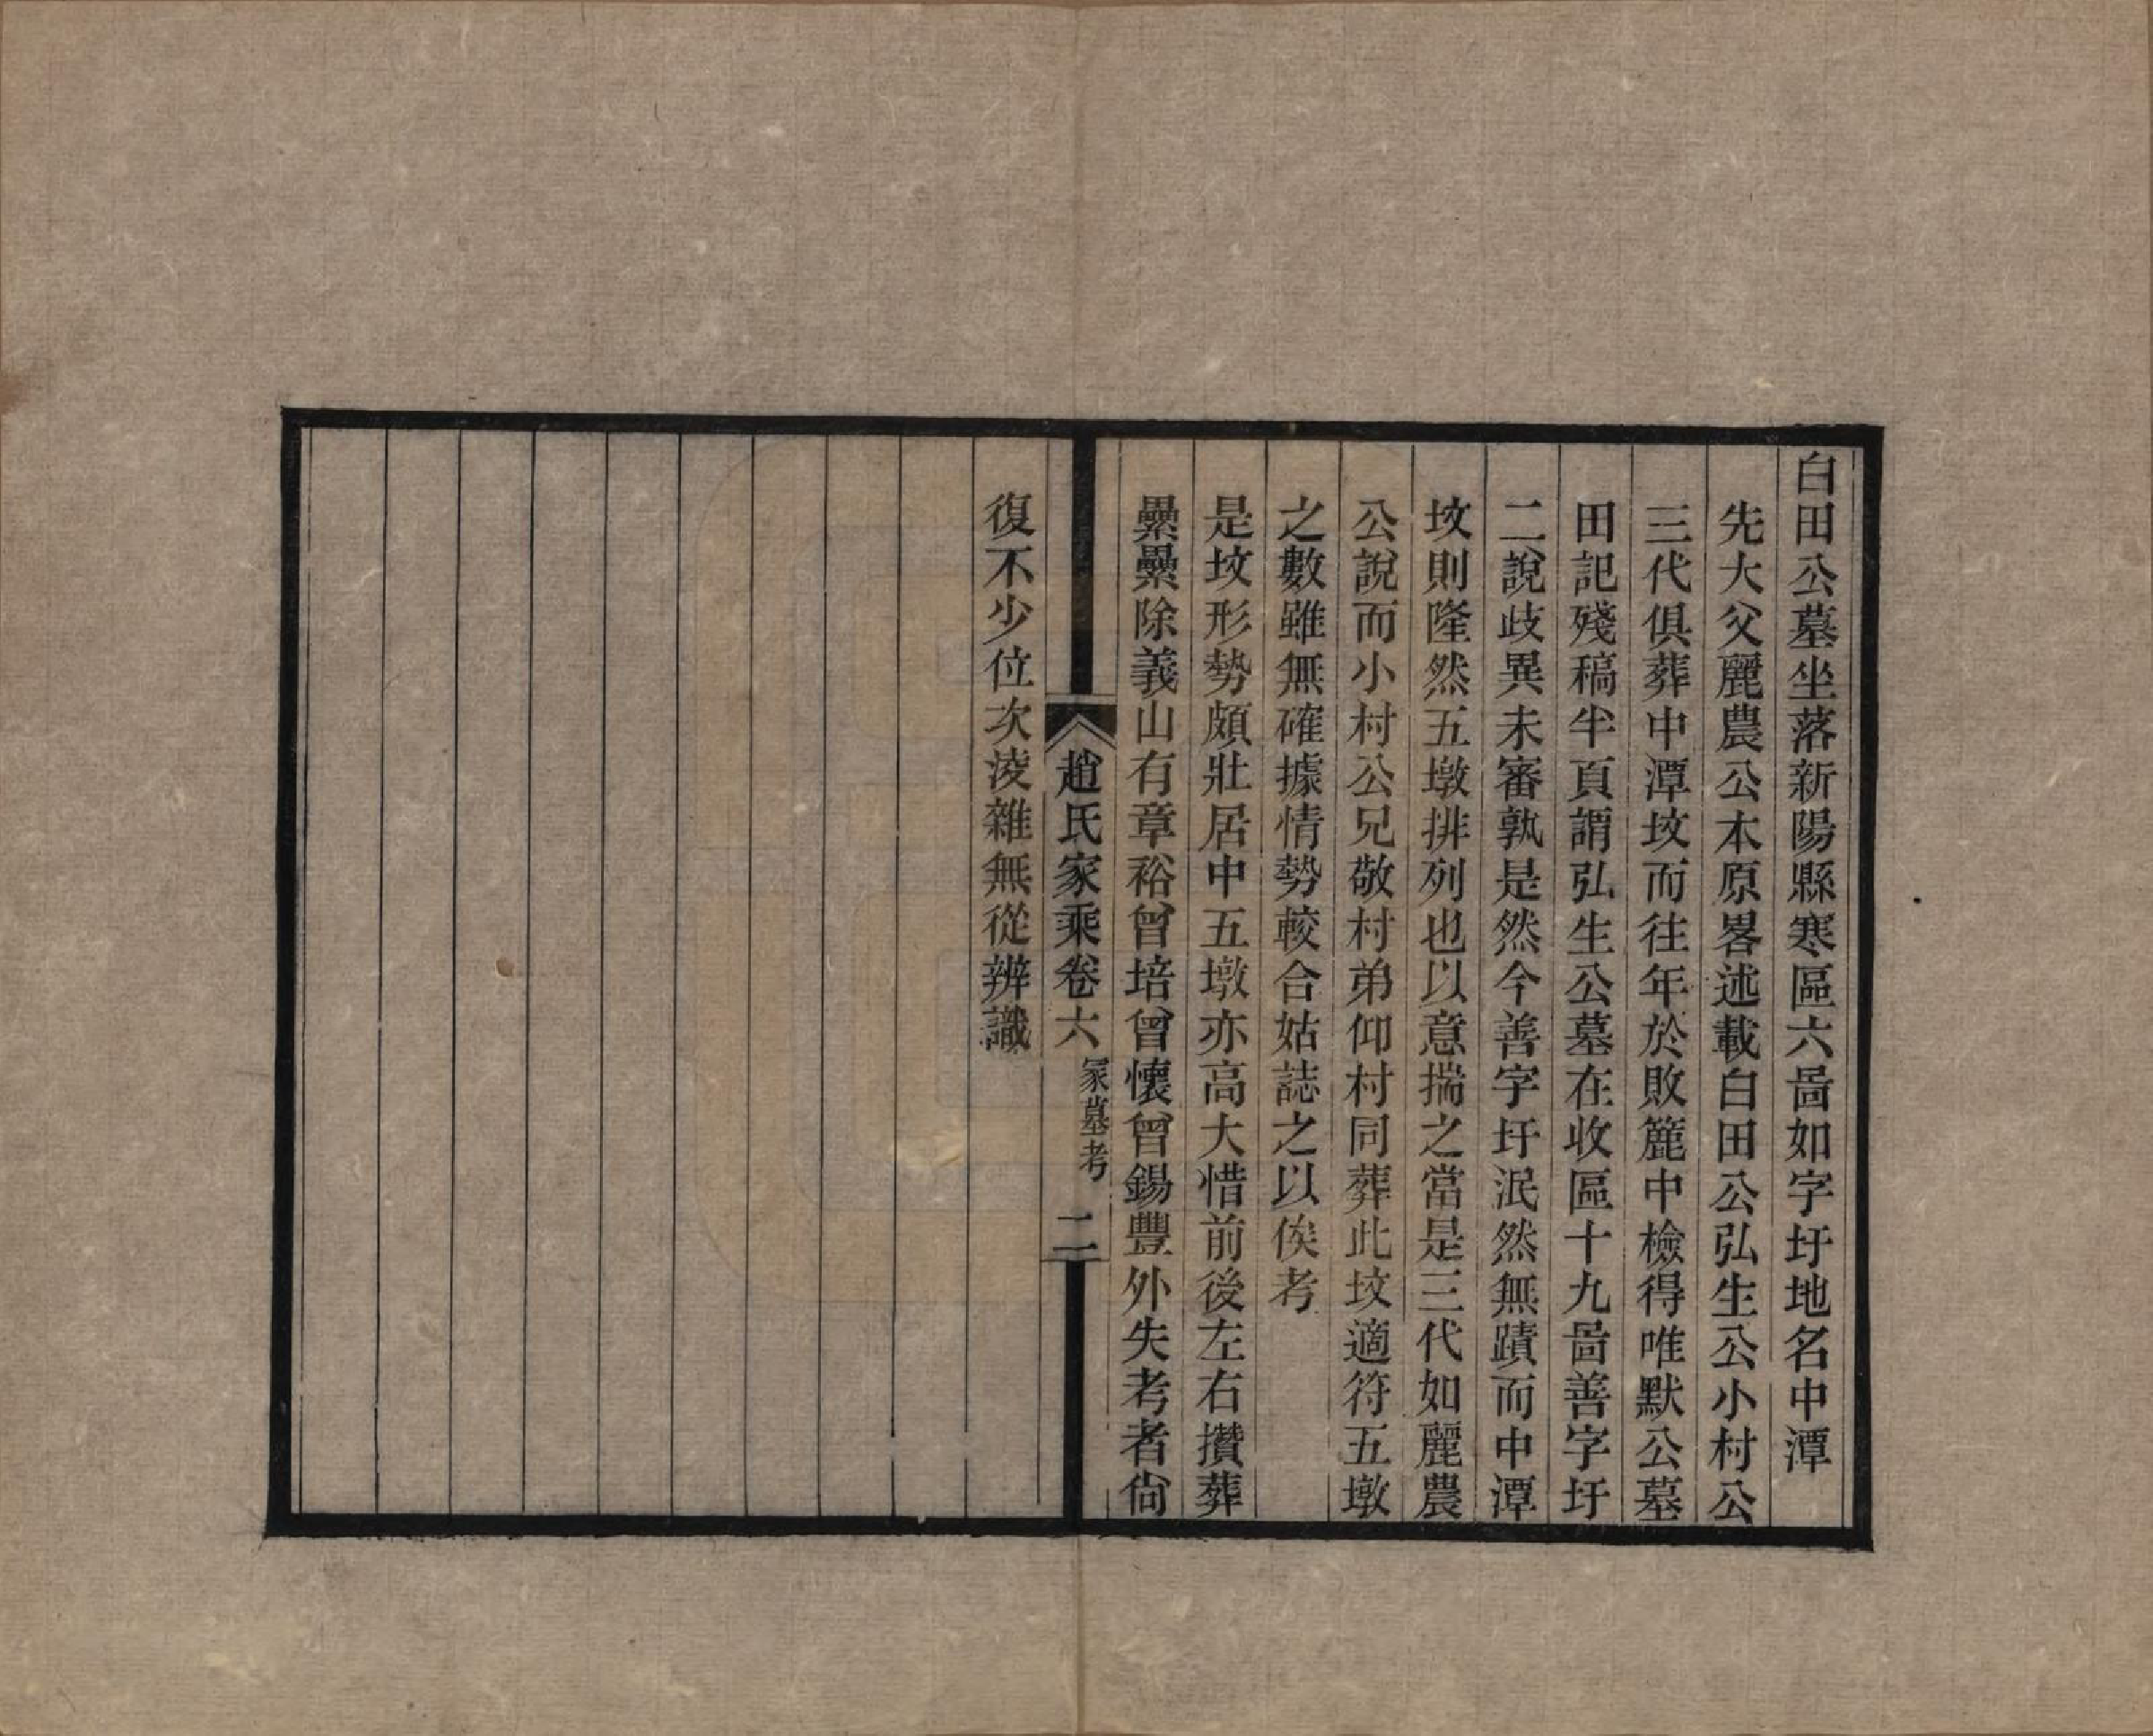 白田公墓坐落新陽縣寒區六啚如字圩地名中潭
先大父麗農公本原畧述載白田公弘生公小村公
三代俱葬中潭坟而往年於敗簏中檢得唯默公墓
田記殘稿半頁謂弘生公墓在收區十九啚善字圩
二說歧異未審孰是然今善字圩泯然無蹟而中潭
坟則隆然五墩排列也以意揣之當是三代如麗農
公說而小村公兄敬村弟仰村同葬此坟適符五墩
之數雖無確據情勢較合姑誌之以俟考
是坟形勢頗壯居中五墩亦高大惜前後左右攢葬
纍纍除義山有章裕曾培曾懷曾錫豐外失考者尙
趙氏家乘卷六 冢墓考 二
復不少位次淩雜無從辨識